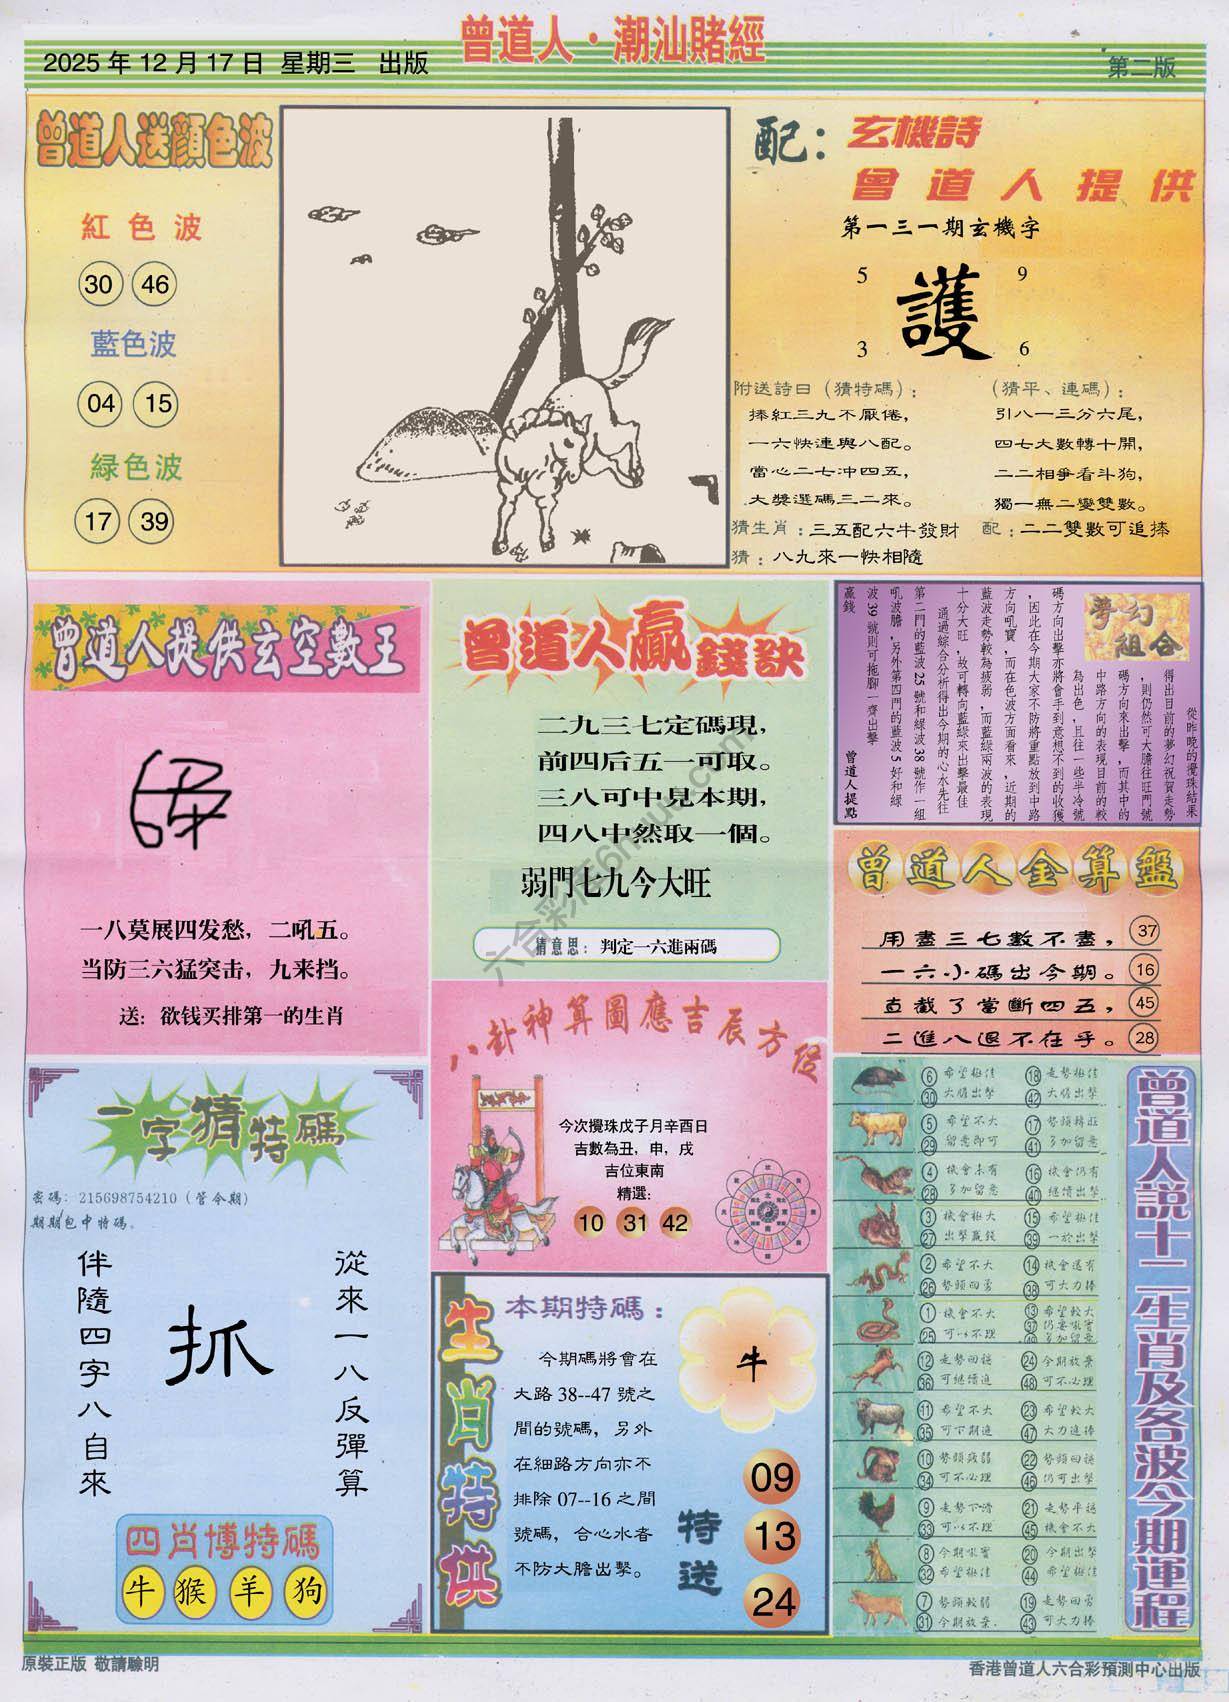 曾道人·潮汕賭經
2025 年 12 月 17 日 星期三 出版
第二版
曾道人送顏色波
紅色波
30 46
藍色波
04 15
緑色波
17 39
配：玄機詩
曾道人提供
第一三一期玄機字
5 9
護
3 6
附送詩曰（猜特碼）：
捧紅三九不厭倦，
一六快連與八配。
當心二七冲四五，
大獎選碼三二來。
（猜平、連碼）：
引八一三分六尾，
四七大數轉十開，
二二相爭看斗狗，
獨一無二變雙數。
猜生肖：三五配六牛發財 配：二二雙數可追捧
猜：八九來一快相隨
曾道人提供玄空數王
一八莫展四发愁，二吼五。
当防三六猛突击，九来挡。
送：欲钱买排第一的生肖
曾道人贏錢訣
二九三七定碼現，
前四后五一可取。
三八可中見本期，
四八中然取一個。
弱門七九今大旺
猜意思：判定一六進兩碼
夢幻組合
從昨晚的攪珠結果
得出目前的夢幻祝賀走勢
，則仍然可大膽往旺門號
碼方向來出擊，而其中的
中路方向的表現目前的較
為出色，且往一些半冷號
碼方向出擊亦將會手到意想不到的收獲
，因此在今期大家不防將重點放到中路
方向吼寶，而在色波方面看來，近期的
藍波走勢較為疲弱，而藍綠兩波的表現
十分大旺，故可轉向藍綠來出擊最佳
通過綜合分析得出今期的心水先往
第二門的藍波 25 號和綠波 38 號作一組
吼波膽，另外第四門的藍波 5 好和綠
波 39 號則可拖腳一齊出擊
贏錢 曾道人提點
曾道人金算盤
用盡三七數不盡， 37
一六小碼出今期。 16
直截了當斷四五， 45
二進八退不在乎。 28
八卦神算圖應吉辰方位
今次攪珠戊子月辛酉日
吉數為丑，申，戌
吉位東南
精選：
10 31 42
一字猜特碼
密碼：215698754210（管今期）
期期包中特碼。
從來一八反彈算
抓
伴隨四字八自來
四肖博特碼
牛 猴 羊 狗
生肖特供
本期特碼：
今期碼將會在
大路 38--47 號之
間的號碼，另外
在細路方向亦不
排除 07--16 之間
號碼，合心水者
不防大膽出擊。
牛
特送
09
13
24
曾道人説十二生肖及各波今期運程
6 希望極佳 18 走勢極佳
30 大膽出擊 42 大膽出擊
5 希望不大 17 勢頭轉旺
29 留意即可 41 多加留意
4 機會未有 16 機會仍有
28 多加留意 40 繼續出擊
3 機會極大 15 希望極佳
27 出擊贏錢 39 一於出擊
2 希望不大 14 機會還有
26 勢頭回勇 38 可大力捧
1 機會不大 13 希望較大
25 可以不理 37
49 多加留意
12 走勢回穩 24 今期放棄
36 可繼續追 48 可不必理
11 希望不大 23 希望較大
35 可下期追 47 大力追捧
10 勢頭疲弱 22 勢頭回穩
34 可不必理 46 仍可出擊
9 走勢下滑 21 走勢平穩
33 可以不理 45 機會不大
8 今期吼寶 20 今期出擊
32 希望極佳 44 希望極佳
7 勢頭較弱 19 走勢回勇
31 今期放棄. 43 可大力捧
原裝正版 敬請驗明
香港曾道人六合彩預測中心出版